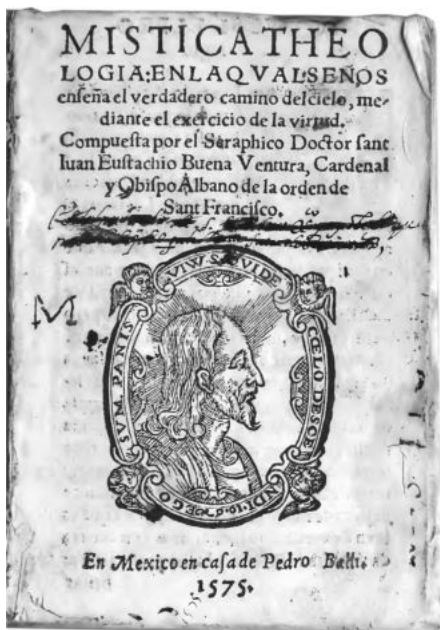 MISTICATHEO
LOGIA:ENLAQVAL:SENOS
enseña el verdadero camino del cielo, me-
diante el exercicio de la virtud.
Compuesta por el Seraphico Doctor sant
Iuan Eustachio Buena Ventura, Cardenal
y Obispo Albano de la orden de
Sant Francisco.
M
EGO SVM. PANIS VIWS. VIDE CŒLO DESCE NDI. IO. 6.
En Mexico en casa de Pedro Balli.
1575.